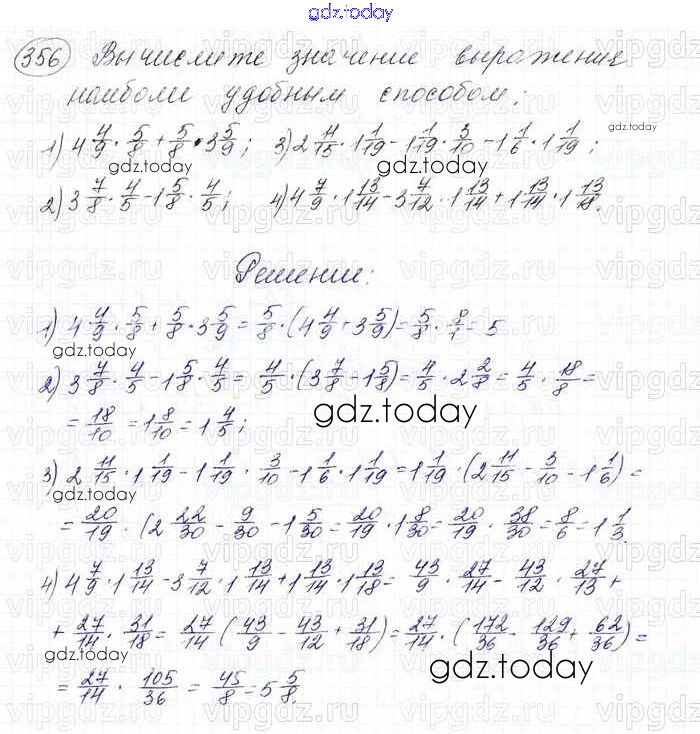 gdz.today
356 Вычислите значение выражения
наиболее удобным способом:
1) 4 4/9 · 5/8 + 5/8 · 3 5/9; 3) 2 11/15 · 1 1/19 - 1 1/19 · 3/10 - 1 1/6 · 1 1/19;
gdz.today gdz.today
2) 3 7/8 · 4/5 - 1 5/8 · 4/5; 4) 4 7/9 · 1 13/14 - 3 7/12 · 1 13/14 + 1 13/14 · 1 13/18.
Решение:
1) 4 4/9 · 5/8 + 5/8 · 3 5/9 = 5/8 · (4 4/9 + 3 5/9) = 5/8 · 8/1 = 5
gdz.today
2) 3 7/8 · 4/5 - 1 5/8 · 4/5 = 4/5 · (3 7/8 - 1 5/8) = 4/5 · 2 2/8 = 4/5 · 18/8 =
= 18/10 = 1 8/10 = 1 4/5; gdz.today
3) 2 11/15 · 1 1/19 - 1 1/19 · 3/10 - 1 1/6 · 1 1/19 = 1 1/19 · (2 11/15 - 3/10 - 1 1/6) =
gdz.today
= 20/19 · (2 22/30 - 9/30 - 1 5/30 = 20/19 · 1 8/30 = 20/19 · 38/30 = 8/6 = 1 1/3.
4) 4 7/9 · 1 13/14 - 3 7/12 · 1 13/14 + 1 13/14 · 1 13/18 = 43/9 · 27/14 - 43/12 · 27/13 +
+ 27/14 · 31/18 = 27/14 (43/9 - 43/12 + 31/18) = 27/14 · (172/36 - 129/36 + 62/36) =
gdz.today
= 27/14 · 105/36 = 45/8 = 5 5/8.
gdz.today